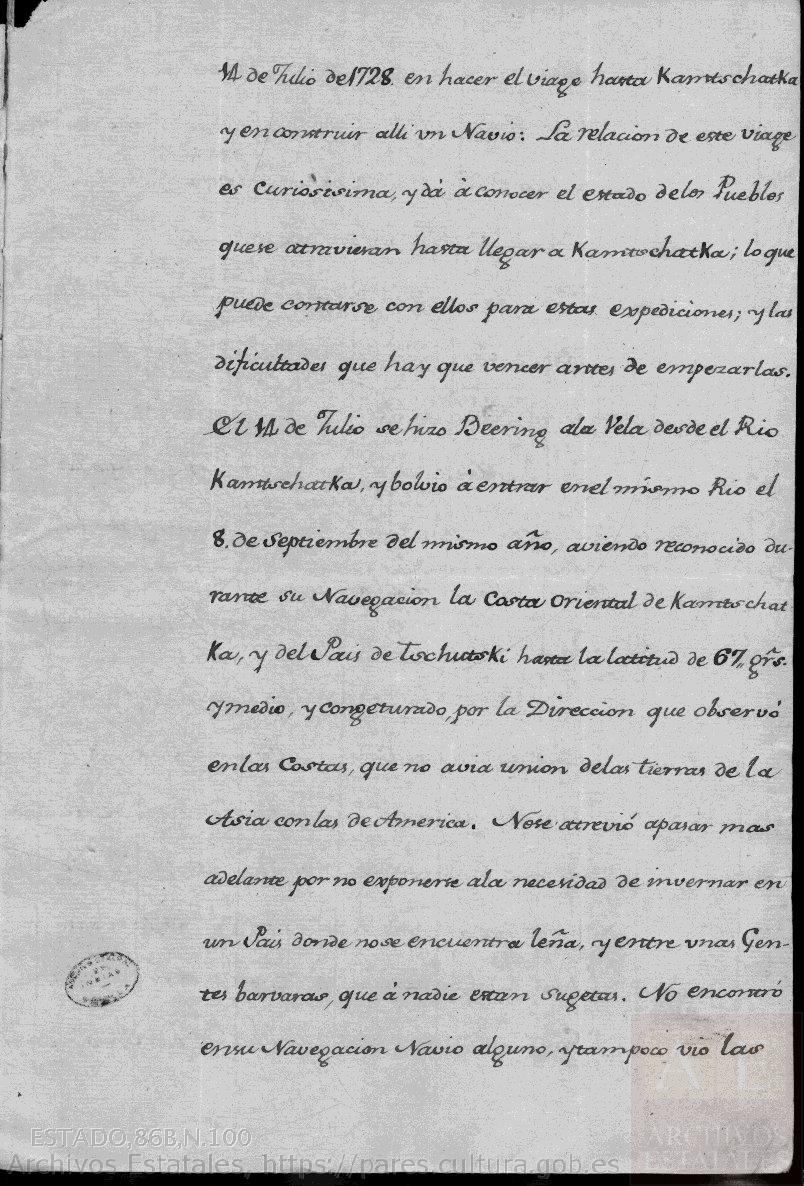 14 de Julio de 1728. en hacer el viage hasta Kamtschatka
y en construir alli vn Navio: La relacion de este viage
es curiosisima, y dá à conocer el estado delos Pueblos
quese atraviesan hasta llegar a Kamtschatka; lo que
puede contarse con ellos para estas expediciones; y las
dificultades que hay que vencer antes de empezarlas.
El 14 de Julio se hizo Beering ala Vela desde el Rio
Kamtschatka, y bolvio á entrar enel mismo Rio el
8. de Septiembre del mismo año, aviendo reconocido du-
rante su Navegacion la Costa oriental de Kamtschat
Ka, y del Pais de Tschutski hasta la latitud de 67,, grs.
y medio, y congeturado, por la Direccion que observó
enlas Costas, que no avia union delas tierras de la
Asia conlas de America. Nose atrevió apasar mas
adelante por no exponerse ala necesidad de invernar en
un Pais donde nose encuentra leña, y entre vnas Gen-
tes barvaras, que á nadie estan sugetas. No encontró
ensu Navegacion Navio alguno, y tampoco vio las
ESTADO,86B,N.100
Archivos Estatales, https://pares.cultura.gob.es
AE
ARCHIVOS
ESTATALES